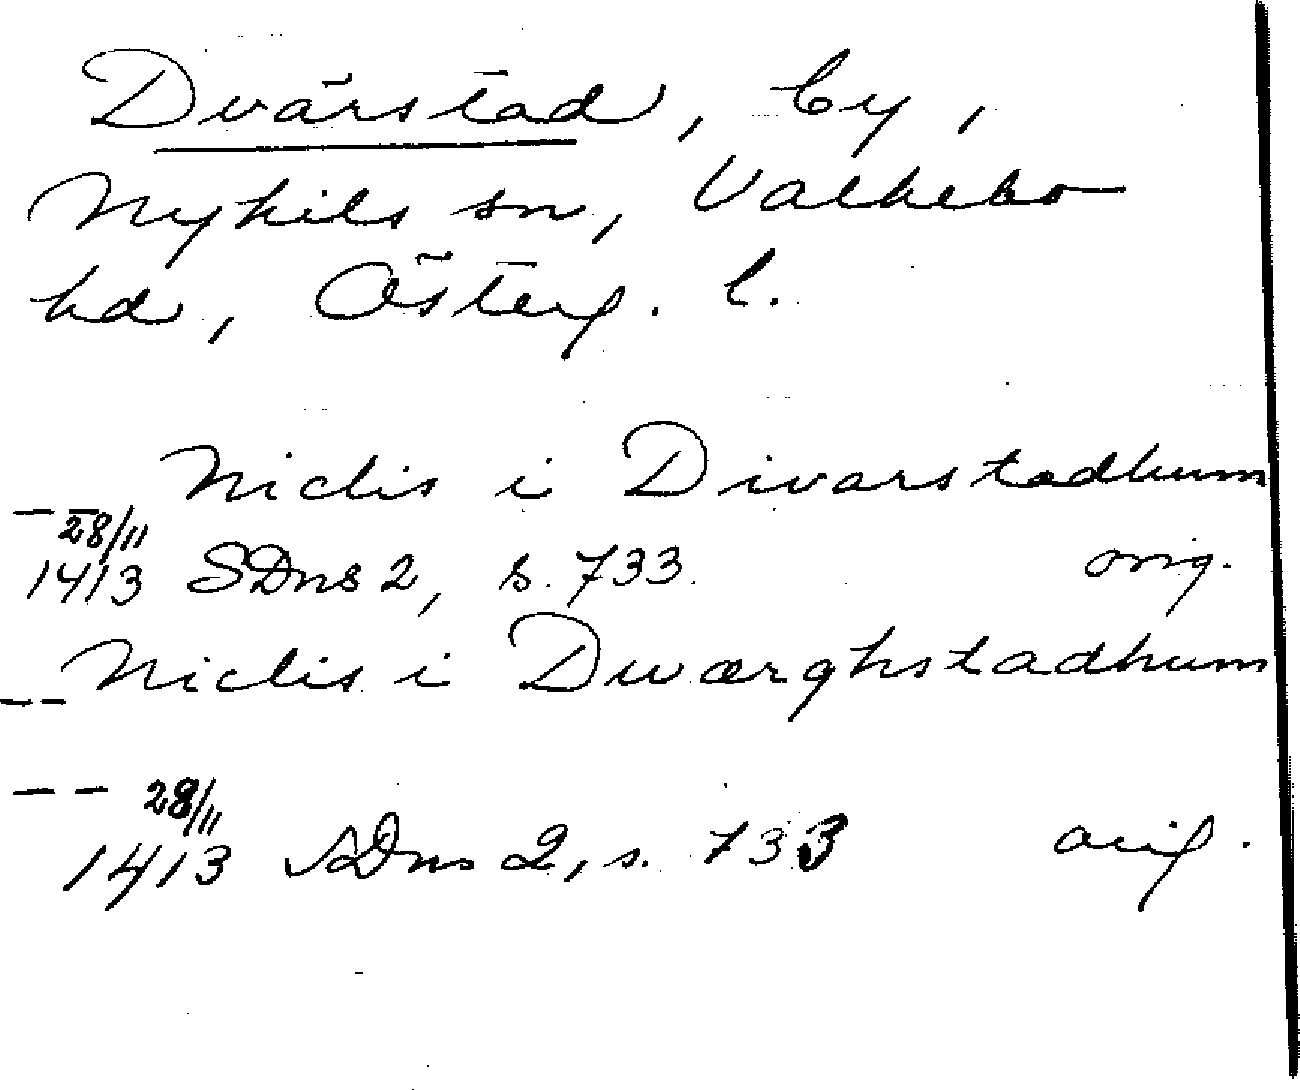 Dvärstad, by,
Nykils sn, Valkebo
hd, Österg. l.
Niclis i Divarstadhum
-- 28/11
1413 SDns 2, s. 733 orig.
Niclis i Dwærghstadhum
--
-- 28/11
1413 SDns 2, s. 733 orig.